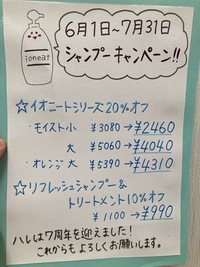 ioneat
6月1日~7月31日
シャンプーキャンペーン!!
☆イオニートシリーズ20%オフ
モイスト小 ¥3080→¥2460
大 ¥5060→¥4040
オレンジ大 ¥5390→¥4310
☆リフレッシュシャンプー&
トリートメント10%オフ
¥1100→¥990
ハレは7周年を迎えました!
これからもよろしくお願いします。